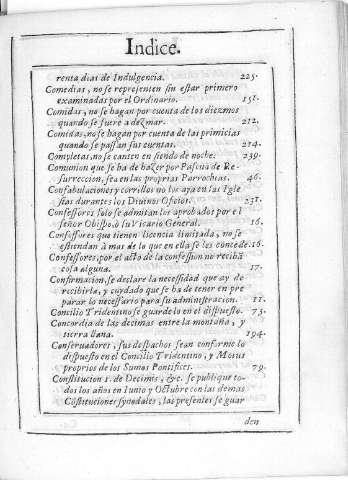 Indice.
renta dias de Indulgencia. 225.
Comedias, no se representen sin estar primero
examinadas por el Ordinario. 151.
Comidas, no se hagan por cuenta de los diezmos
quando se fuere a dezmar. 212.
Comidas, no se hagan por cuenta de las primicias
quando se passan sus cuentas. 214.
Completas, no se canten siendo de noche. 239.
Comunion que se ha de hazer por Pascua de Re
surreccion, sea en las proprias Parrochias. 46.
Confabulaciones y corrillos no los aya en las Igle
sias durante los Diuinos Oficios. 231.
Confessores solo se admitan los aprobados por el
señor Obispo, ò su Vicario General. 16.
Confessores que tienen licencia limitada, no se
estiendan à mas de lo que en ella se les concede. 16.
Confessores, por el acto de la confession no recibã
cosa alguna. 17.
Confirmacion, se declare la necessidad que ay de
recibirla, y cuydado que se ha de tener en pre
parar lo necessario para su administracion. 11.
Concilio Tridentino se guarde lo en el dispuesto. 73.
Concordia de las decimas entre la montaña, y
tierra llana. 194.
Conseruadores, sus despachos sean conforme lo
dispuesto en el Concilio Tridentino, y Motus
proprios de los Sumos Pontifices. 79.
Constitucion 1. de Decimis, &c. se publique to-
dos los años en Iunio y Octubre con las demas
Cõstituciones synodales, las presentes se guar
den